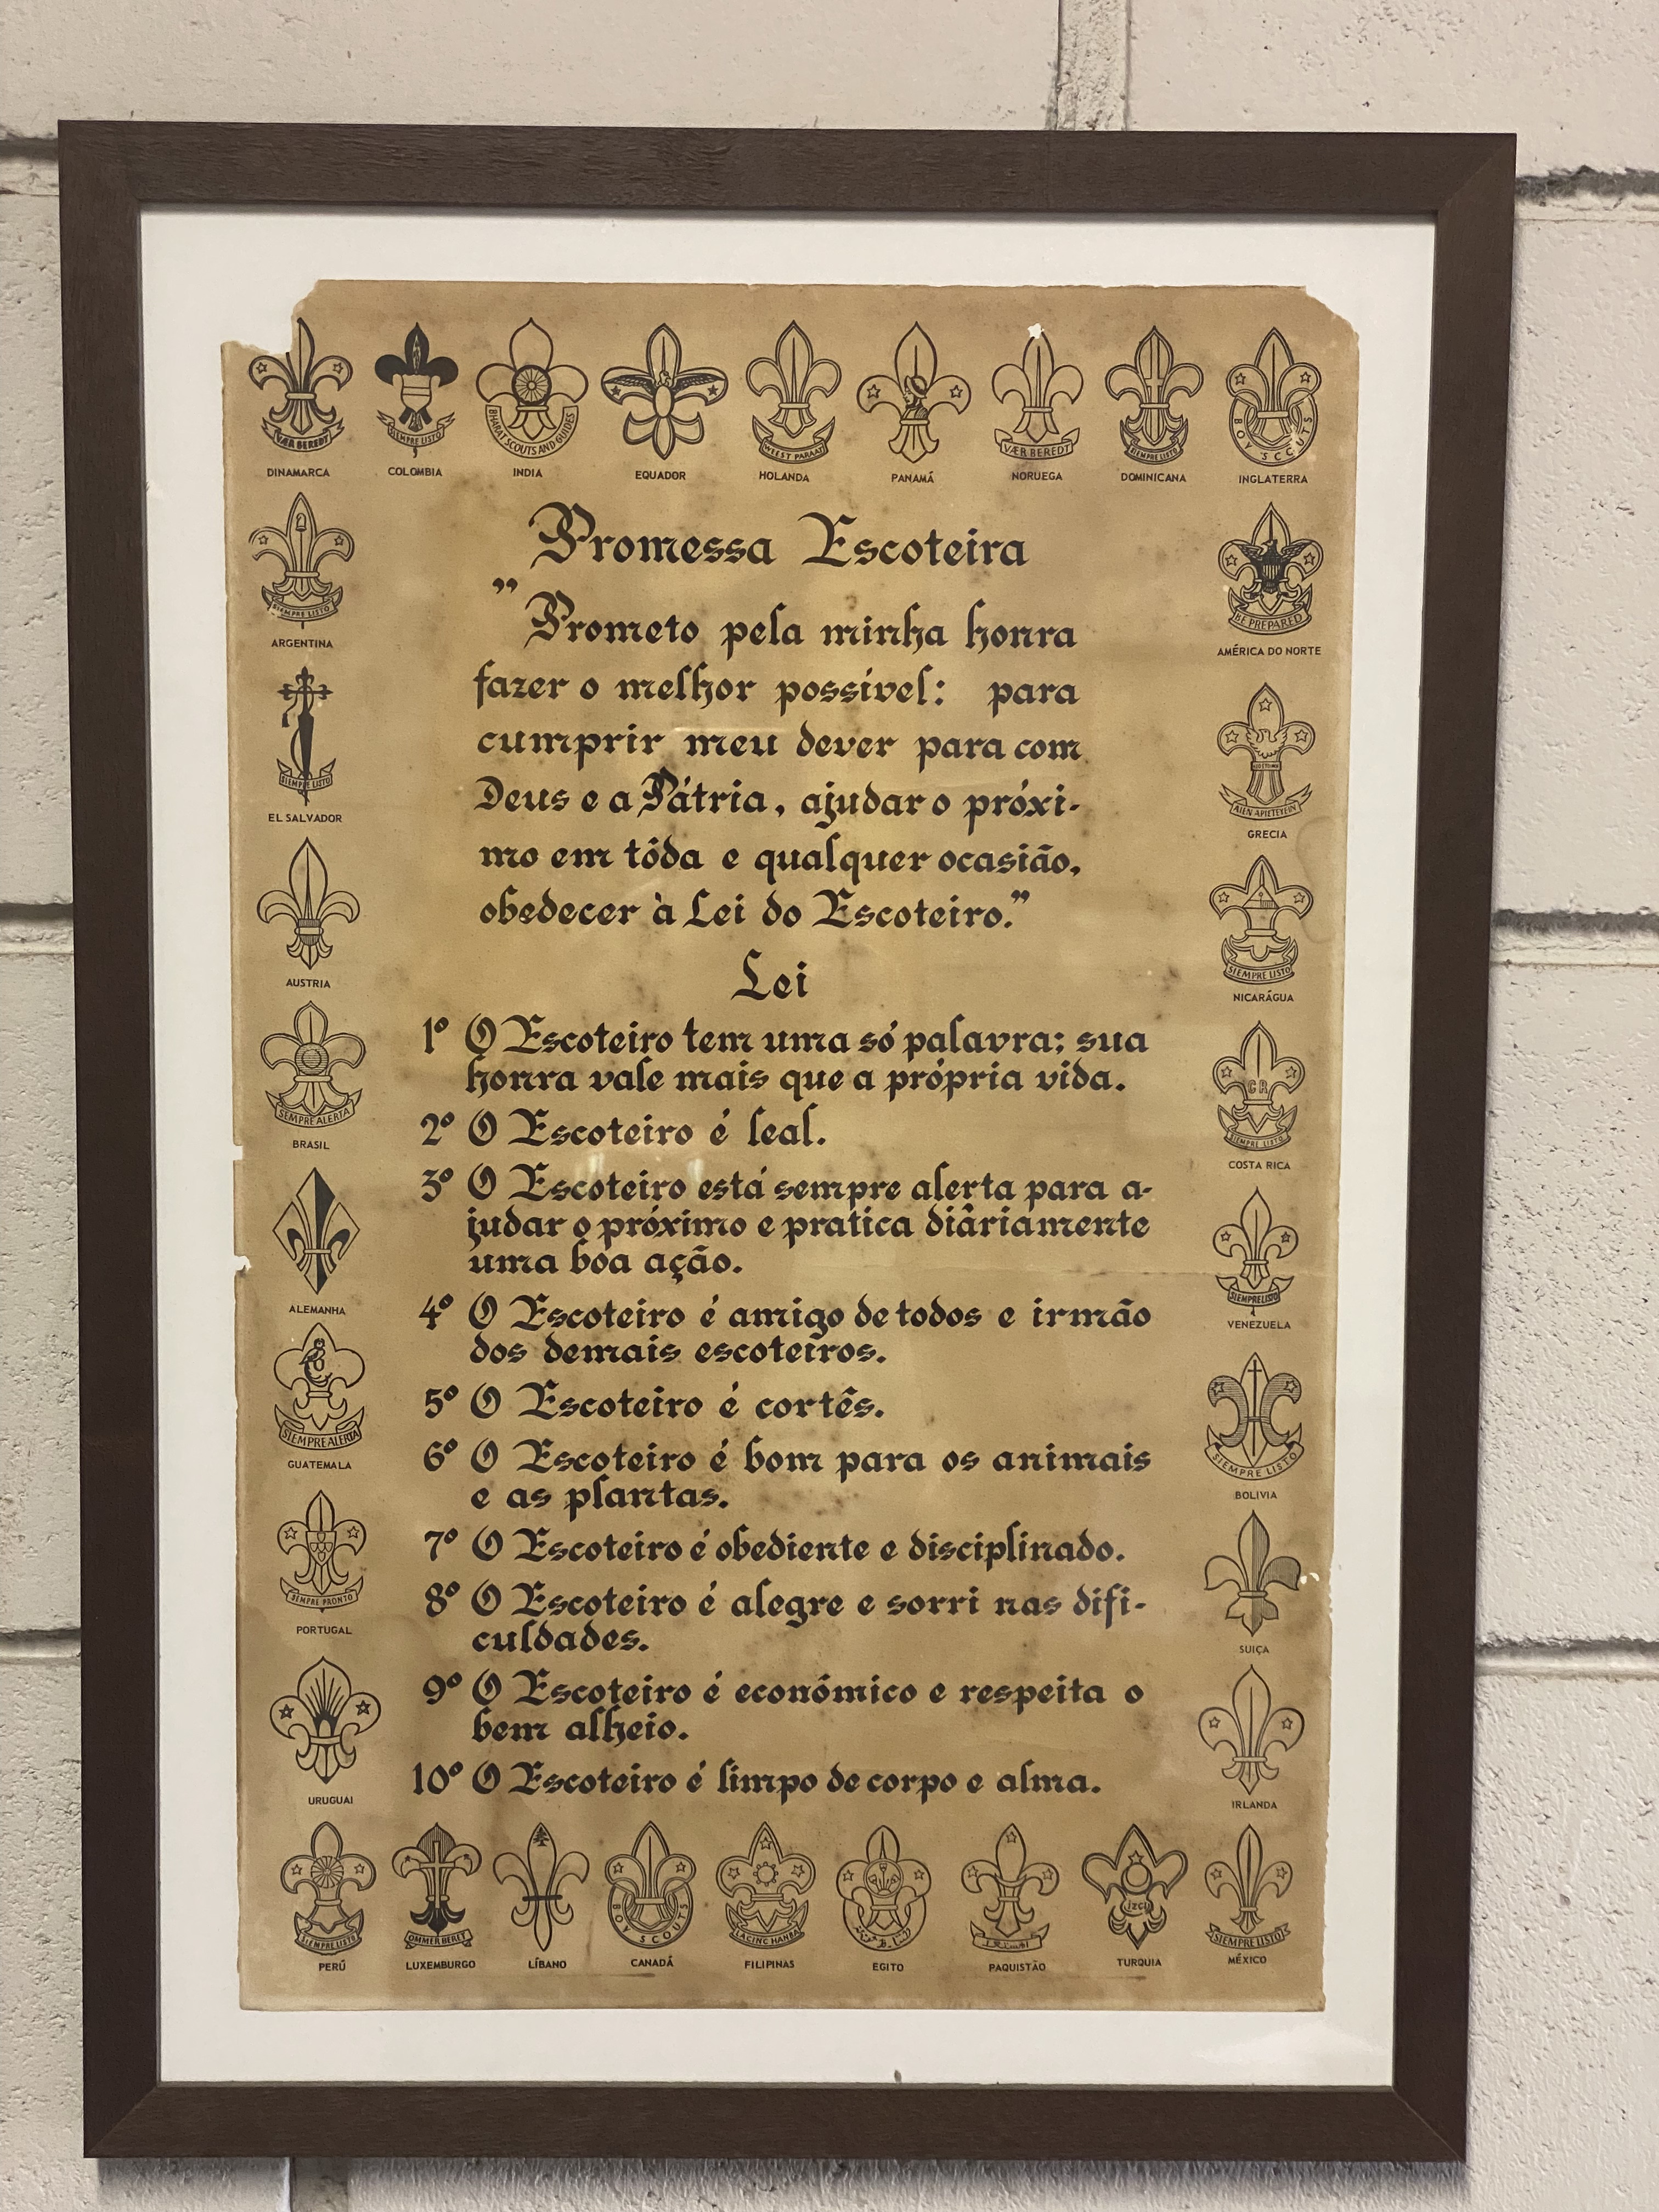 VÆR BEREDT
SIEMPRE LISTO
BHARAT SCOUTS AND GUIDES
WEEST PARAAT
VÆR BEREDT
SIEMPRE LISTO
BOY SCOUTS
DINAMARCA
COLOMBIA
INDIA
EQUADOR
HOLANDA
PANAMÁ
NORUEGA
DOMINICANA
INGLATERRA
SIEMPRE LISTO
ARGENTINA
SIEMPRE LISTO
EL SALVADOR
AUSTRIA
SEMPRE ALERTA
BRASIL
ALEMANHA
SIEMPRE ALERTA
GUATEMALA
SEMPRE PRONTO
PORTUGAL
URUGUAI
Promessa Escoteira
”Prometo pela minha honra
fazer o melhor possível: para
cumprir meu dever para com
Deus e a Pátria, ajudar o próxi-
mo em tôda e qualquer ocasião,
obedecer à Lei do Escoteiro.”
Lei
1º O Escoteiro tem uma só palavra; sua
honra vale mais que a própria vida.
2º O Escoteiro é leal.
3º O Escoteiro está sempre alerta para a-
judar o próximo e pratica diàriamente
uma boa ação.
4º O Escoteiro é amigo de todos e irmão
dos demais escoteiros.
5º O Escoteiro é cortês.
6º O Escoteiro é bom para os animais
e as plantas.
7º O Escoteiro é obediente e disciplinado.
8º O Escoteiro é alegre e sorri nas difi-
culdades.
9º O Escoteiro é económico e respeita o
bem alheio.
10º O Escoteiro é limpo de corpo e alma.
BE PREPARED
AMÉRICA DO NORTE
GRECIA
SIEMPRE LISTO
NICARÁGUA
CR
SIEMPRE LISTO
COSTA RICA
SIEMPRE LISTO
VENEZUELA
SIEMPRE LISTO
BOLIVIA
SUIÇA
IRLANDA
SIEMPRE LISTO
BOY SCOUTS
LAGING HANDA
IZCI
SIEMPRE LISTO
PERÚ
LUXEMBURGO
LÍBANO
CANADÁ
FILIPINAS
EGITO
PAQUISTÃO
TURQUIA
MÉXICO